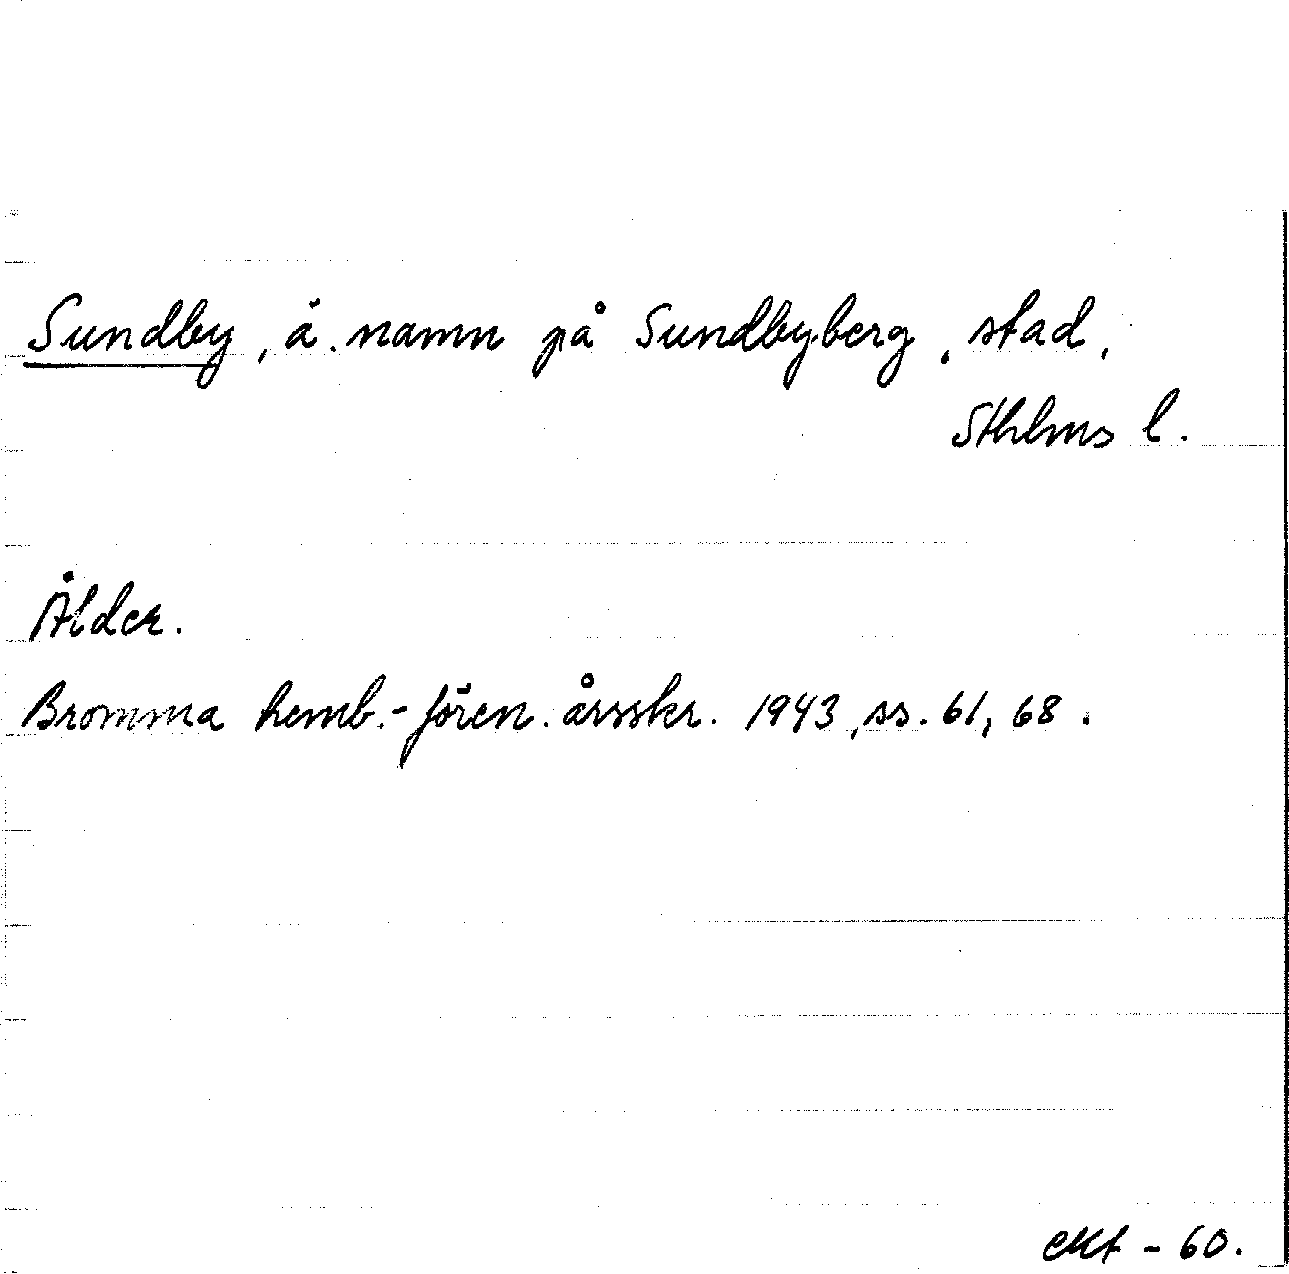 Sundby, ä. namn på Sundbyberg, stad,
Sthlms l.
Ålder.
Bromma hemb.-fören. årsskr. 1943, ss. 61, 68.
okt - 60.